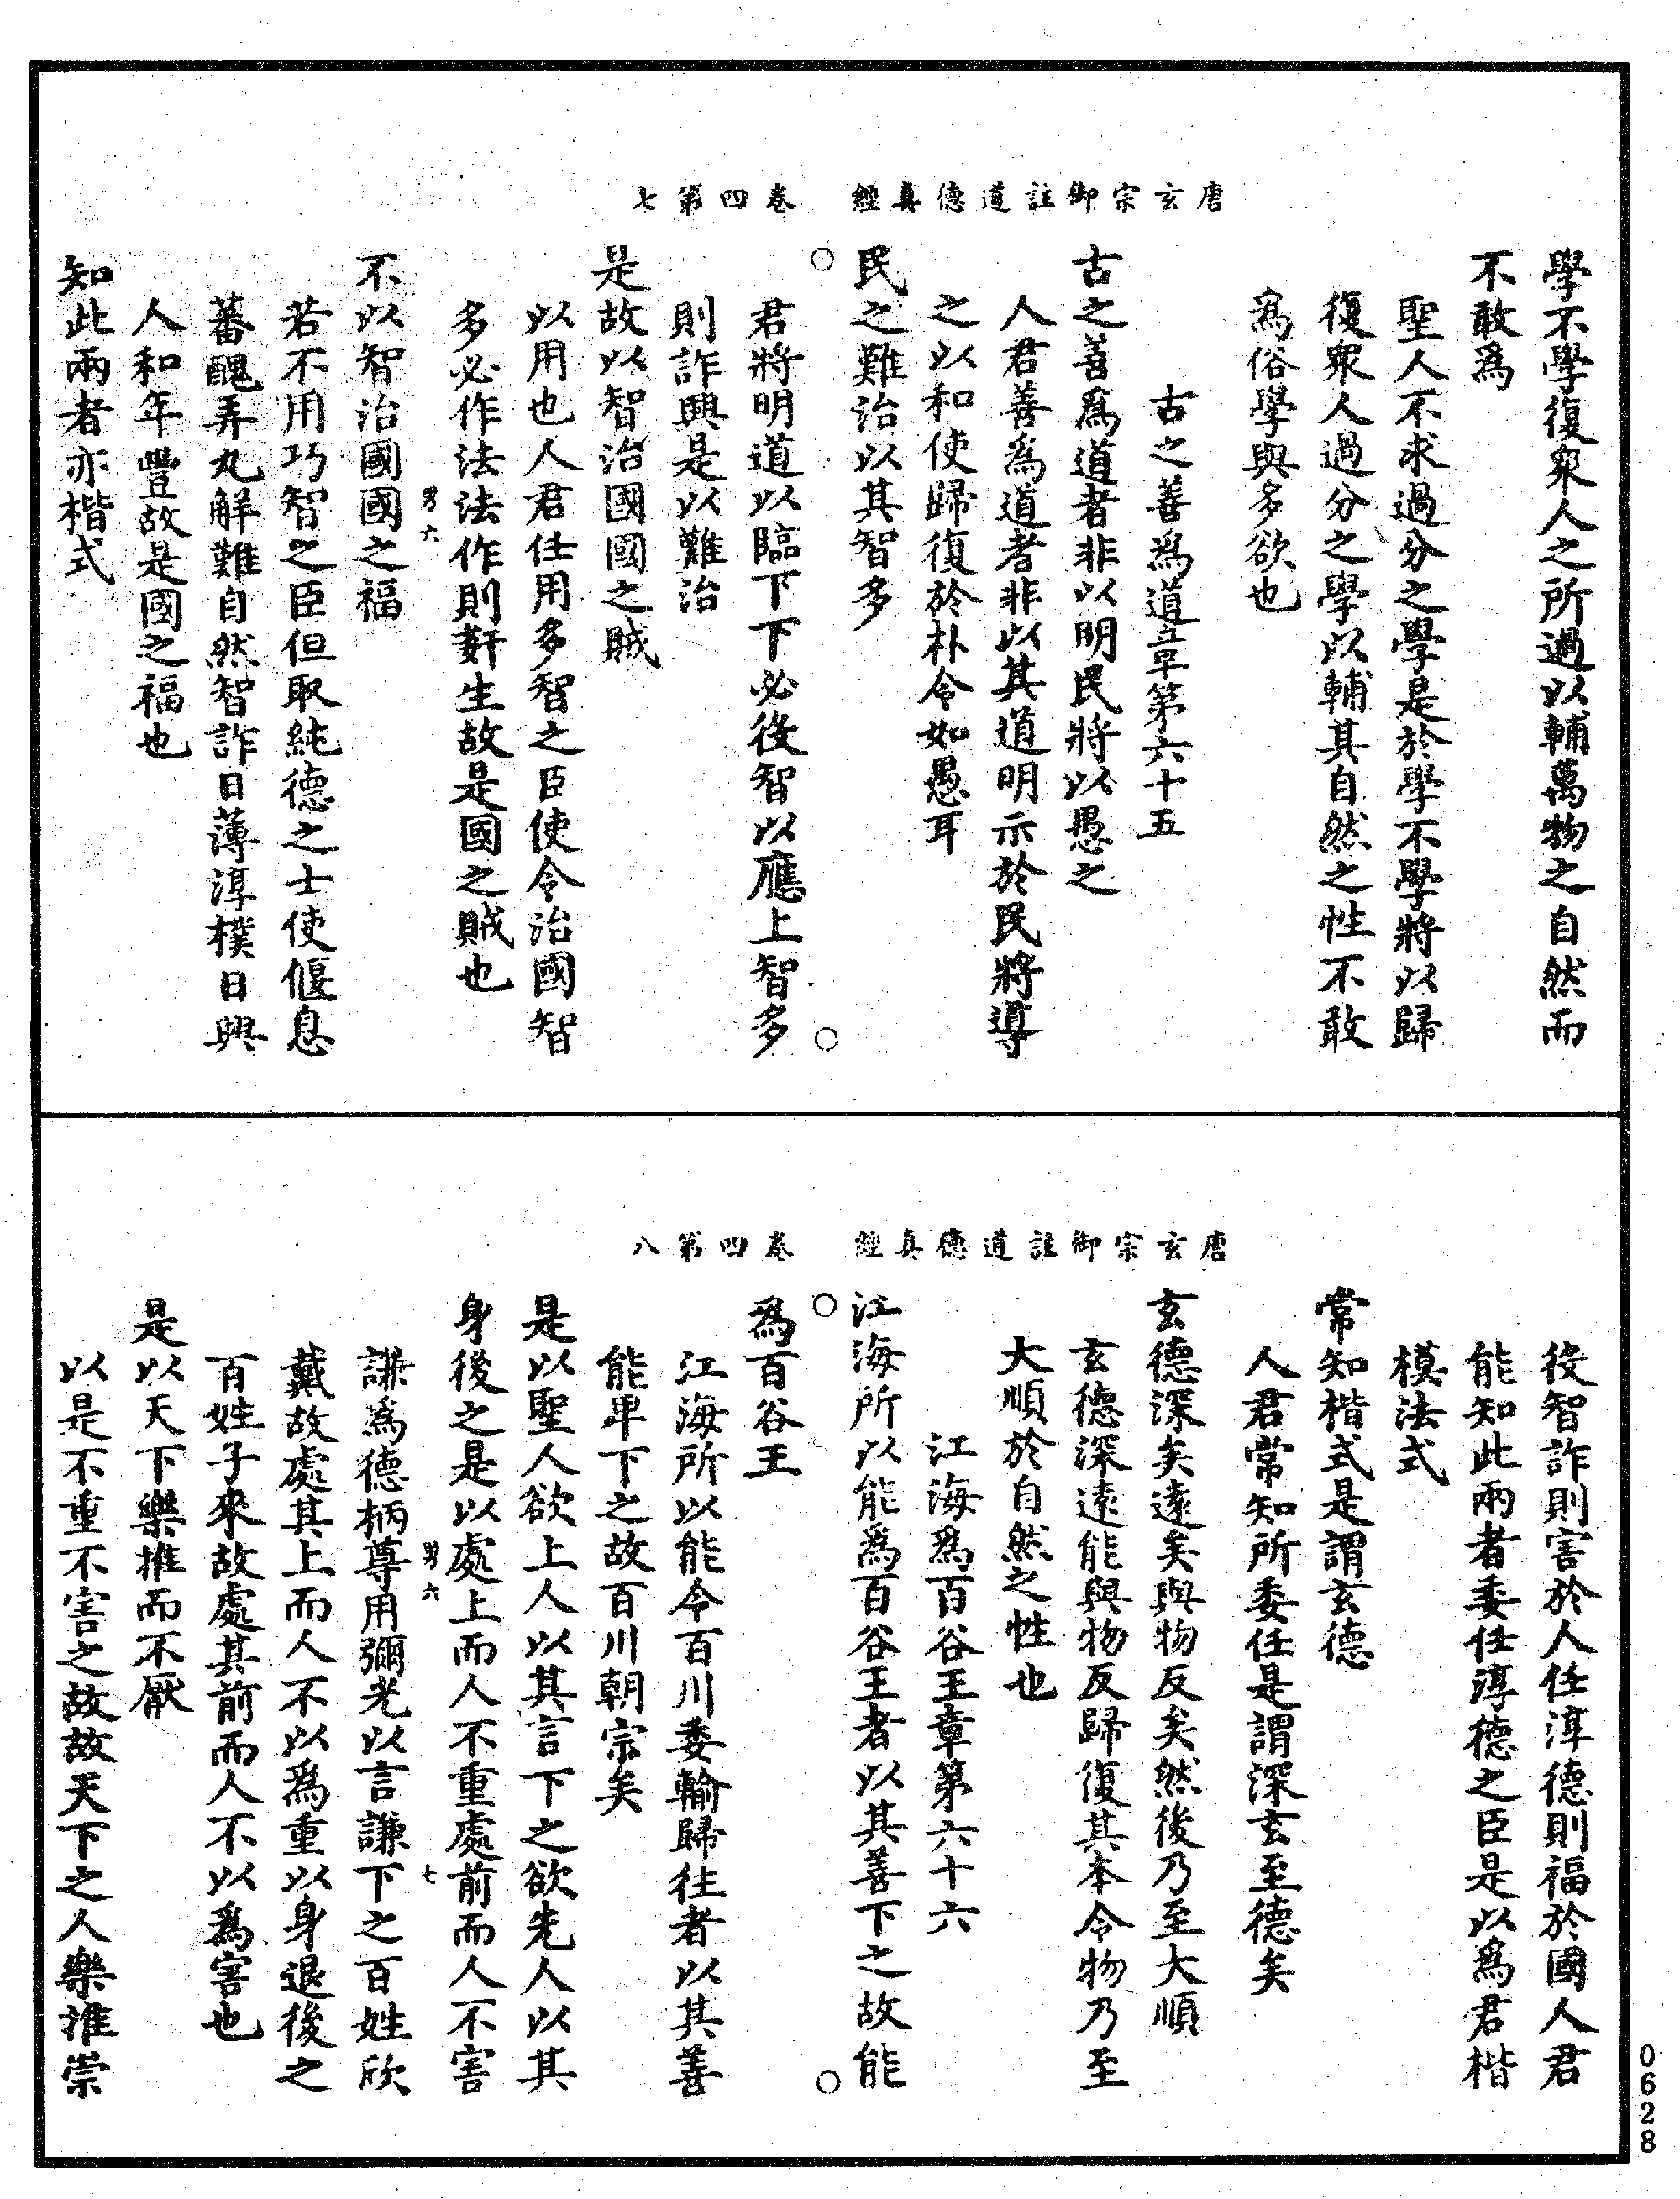 唐玄宗御註道德真經　卷四第七
學不學復衆人之所過以輔萬物之自然而
不敢爲
聖人不求過分之學是於學不學將以歸
復衆人過分之學以輔其自然之性不敢
爲俗學與多欲也
古之善爲道章第六十五
古之善爲道者非以明民將以愚之
人君善爲道者非以其道明示於民將導
之以和使歸復於朴令如愚耳
民之難治以其智多
君將明道以臨下下必役智以應上智多
則詐興是以難治
是故以智治國國之賊
以用也人君任用多智之臣使令治國智
多必作法法作則姧生故是國之賊也
男六
不以智治國國之福
若不用巧智之臣但取純德之士使偃息
蕃醜弄丸解難自然智詐日薄淳樸日興
人和年豐故是國之福也
知此兩者亦楷式
唐玄宗御註道德真經　卷四第八
役智詐則害於人任淳德則福於國人君
能知此兩者委任淳德之臣是以爲君楷
模法式
常知楷式是謂玄德
人君常知所委任是謂深玄至德矣
玄德深矣遠矣與物反矣然後乃至大順
玄德深遠能與物反歸復其本令物乃至
大順於自然之性也
江海爲百谷王章第六十六
江海所以能爲百谷王者以其善下之故能
爲百谷王
江海所以能令百川委輸歸往者以其善
能卑下之故百川朝宗矣
是以聖人欲上人以其言下之欲先人以其
身後之是以處上而人不重處前而人不害
男六　七
謙爲德柄尊用彌光以言謙下之百姓欣
戴故處其上而人不以爲重以身退後之
百姓子來故處其前而人不以爲害也
是以天下樂推而不厭
以是不重不害之故故天下之人樂推崇
0628